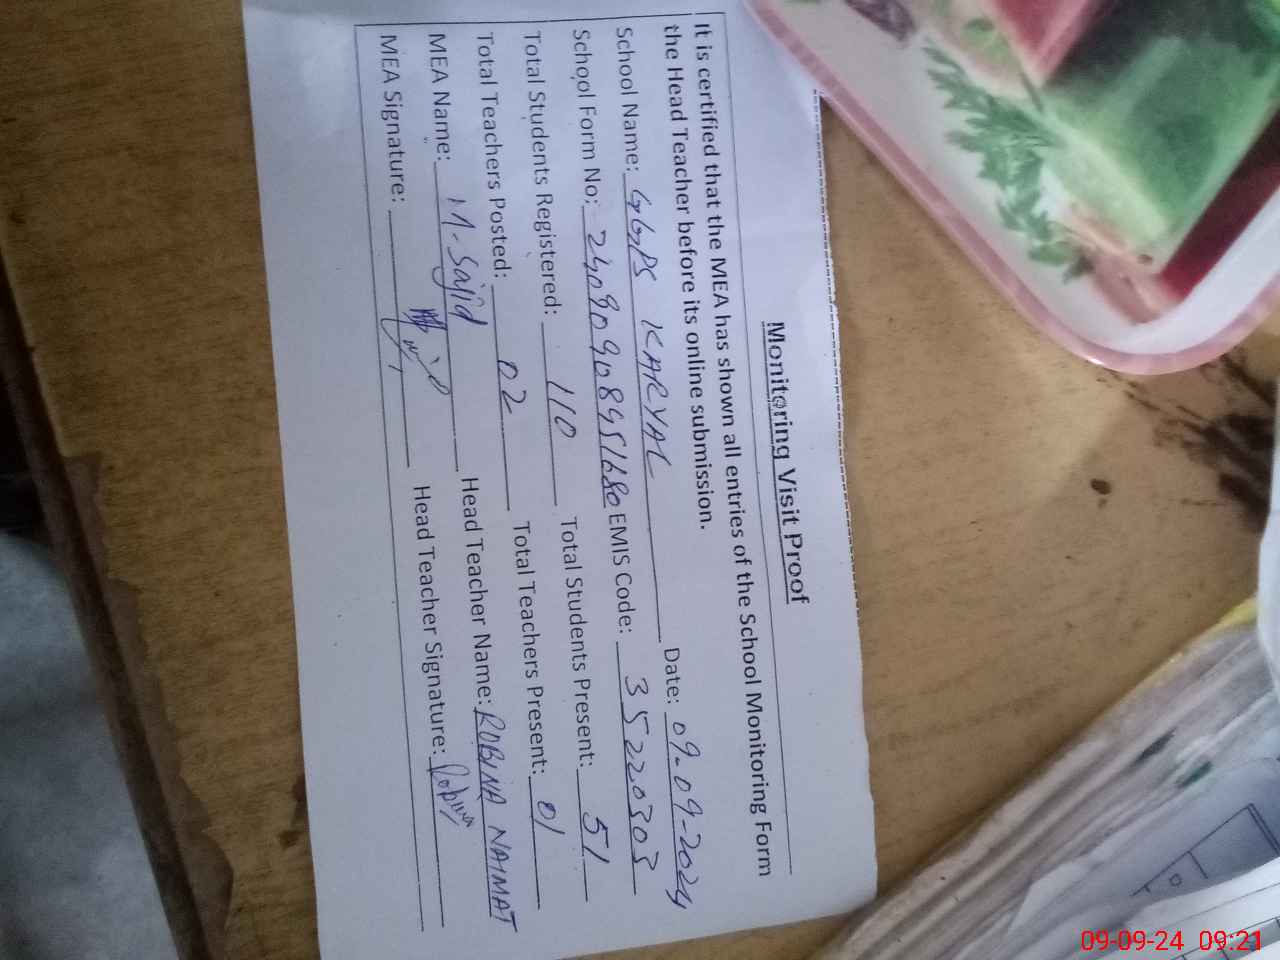 Monitoring Visit Proof
It is certified that the MEA has shown all entries of the School Monitoring Form
the Head Teacher before its online submission.
School Name: GGPS KARYAL Date: 09-09-2024
School Form No: 24090908451680 EMIS Code: 35220303
Total Students Registered: 110 Total Students Present: 51
Total Teachers Posted: 02 Total Teachers Present: 01
MEA Name: M-Sajid Head Teacher Name: ROBINA NAIMAT
MEA Signature: Head Teacher Signature: Robina
09-09-24 09:21